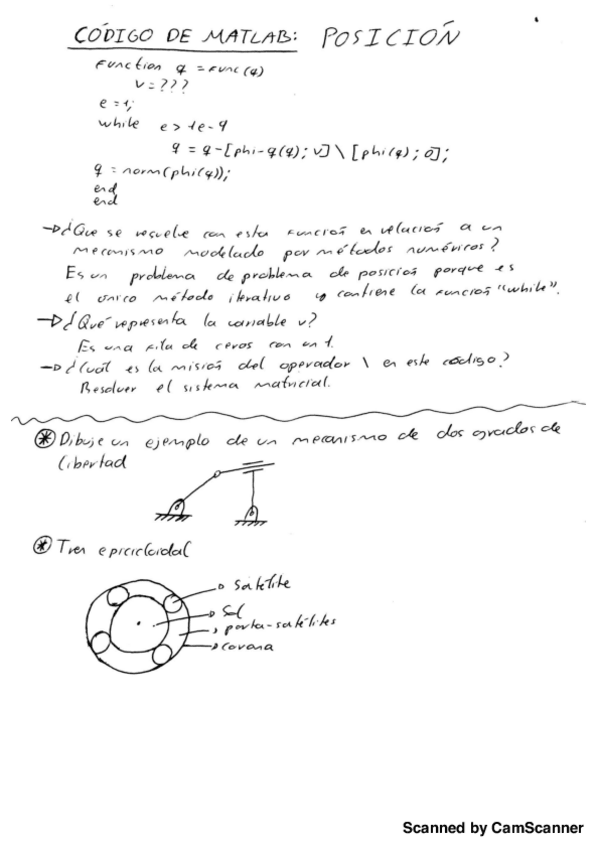 CÓDIGO DE MATLAB: POSICIÓN
Function q = Func(q)
v = ???
e = 1;
while e > 1e-9
q = q-[phi-q(q); v] \ [phi(q); 0];
q = norm(phi(q));
end
end
→¿Que se resuelve con esta función en relación a un
mecanismo modelado por métodos numéricos?
Es un problema de problema de posición porque es
el único método iterativo y contiene la función "while".
→¿Qué representa la variable v?
Es una fila de ceros con un 1.
→¿Cuál es la misión del operador \ en este código?
Resolver el sistema matricial.
* Dibuje un ejemplo de un mecanismo de dos grados de
libertad
* Tren epicicloidal
satélite
Sol
porta-satélites
corona
Scanned by CamScanner